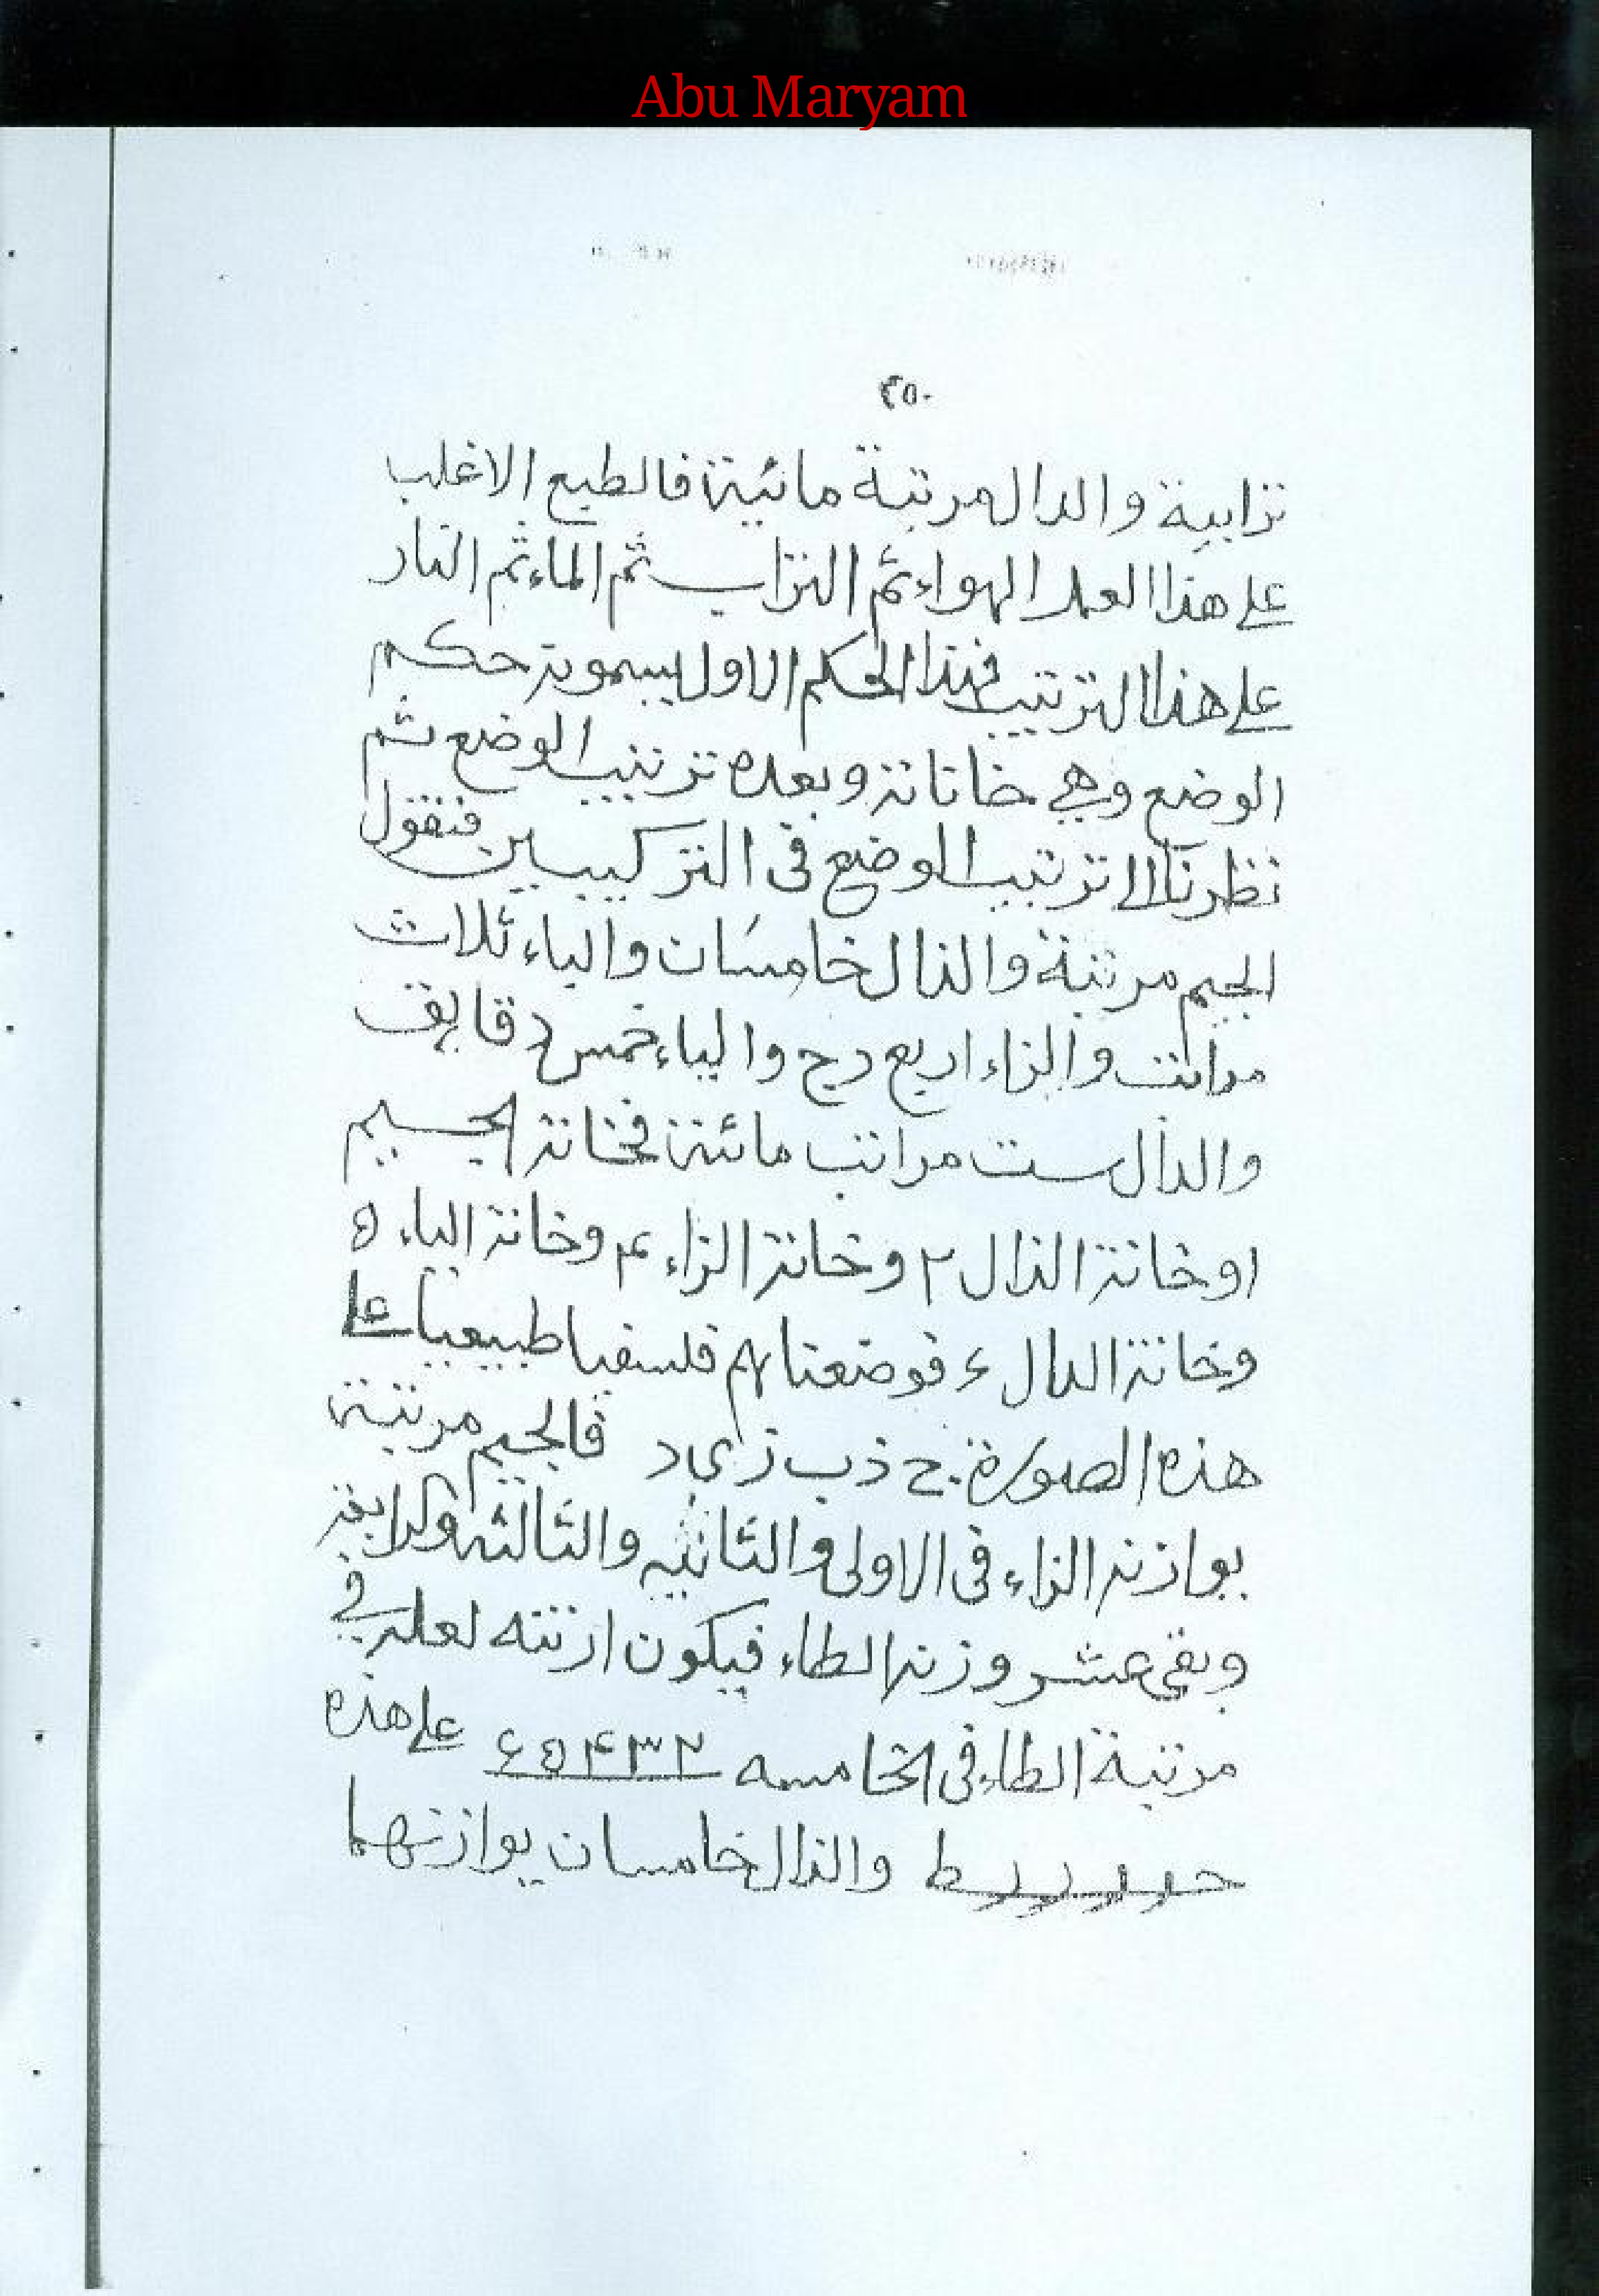 Abu Maryam
٢٥٠
ترابية والدال مرتبة مائية فالطبع الاغلب
على هذا العمل الهواء ثم التراب ثم الماء ثم النار
على هذا الترتيب فهذا الحكم الاول يسمونه حكم
الوضع وهي خاناته وبعده ترتيب الوضع ثم
نظرنا الى ترتيب الوضع في التركيبين فنقول
الجيم مرتبة والذال خامسان والباء ثلاث
مراتب والزاء اربع درج والياء خمس دقايق
والدال ست مراتب مائته فخانة الجيم
١ وخانة الذال ٢ وخانة الزاء ۴ وخانة الياء ۵
وخانة الدال ۶ فوضعناهم فلسفيا طبيعيا على
هذه الصورة ج ذ ب ز ى د فالجيم مرتبة
بوازنه الزاء في الاولى والثانيه والثالثه والرابعة
وبقى عشر وزنه الطاء فيكون
مرتبة الطاء في الخامسه ٢ ٣ ۴ ۵ ۶ على هذه
والذال خامسان يوازنهما